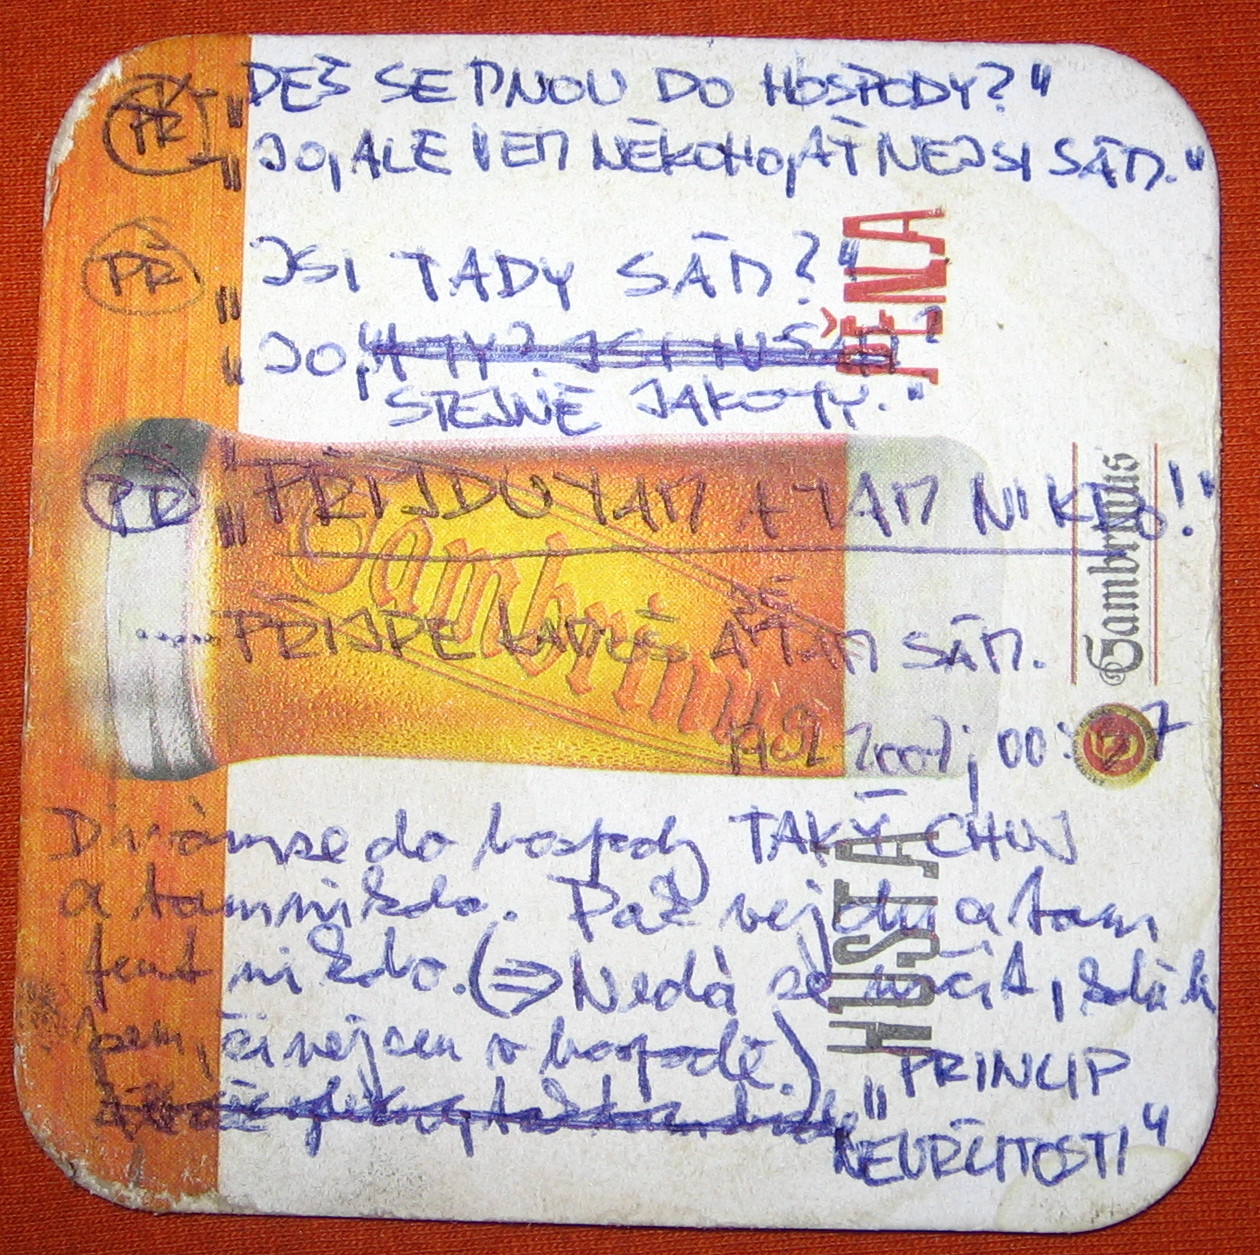 PŘ „DEŠ SE MNOU DO HOSPODY?"
„JO, ALE VEM NĚKOHO, AŤ NEJSI SÁM."
PŘ „JSI TADY SÁM?"
„JO,
STEJNĚ JAKO TY."
PŘ „PŘIJDU TAM A TAM NIKDO!"
.....PŘIJDE A JE TAM SÁM.
2007; 00:
Dívám se do hospody TAKÝ CHUJ
a tam nikdo. Pak vejdu a tam
furt nikdo. (⇒ Nedá se určit, kdy
jsem, či nejsem v hospodě.)
„PRINCIP
NEURČITOSTI"
HUSTÁ PĚNA
Gambrinus
Gambrinus